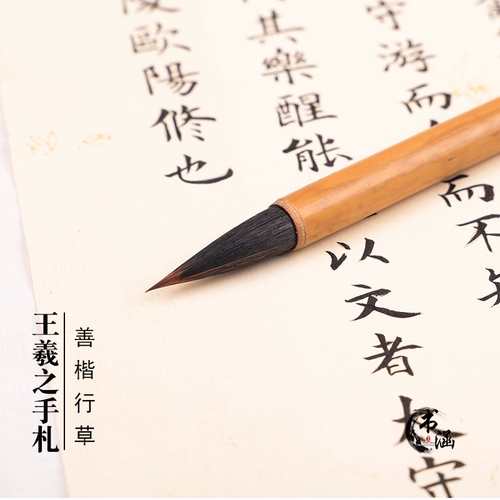 守游而
而不
其樂醒能
以文者
守
歐陽修也
王羲之手札
善楷行草